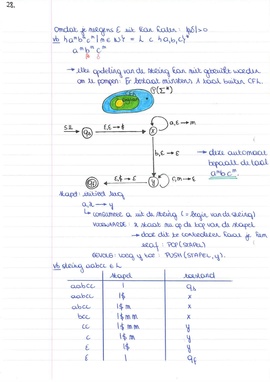 28.
Omdat je nergens ε uit kan halen: |yz| > 0
vb {aᵐbᶜᵐ | m ∈ ℕ} = L ⊂ {a,b,c}*
aᵐbcᵐ
→ elke opdeling van de string kan niet gebruikt worden
om te pompen: Er bestaat minstens 1 taal buiten CFL.
P(Σ*)
ε,ε→$
a,ε→m
x
b,ε→ε
→ deze automaat
bepaalt de taal
aᵐbcᵐ.
ε,$→ε
y
c,m→ε
stapel: initieel leeg
a,x → y
consumeer a uit de string (= begin van de string)
VOORWAARDE: x staat nu op de top van de stapel
→ door dit te controleren haal je hem
eraf: POP(STAPEL)
GEVOLG: voeg y toe: PUSH(STAPEL, y).
vb string aabcc ∈ L
stapel toestand
aabcc | qs
aabcc |$ x
abcc |$m x
bcc |$mm x
cc |$mm y
c |$m y
ε |$ y
ε | qf